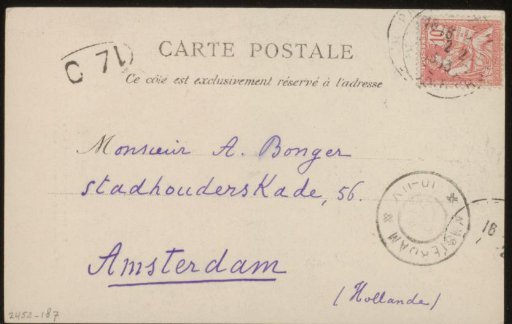 CARTE POSTALE
Ce côté est exclusivement réservé à l'adresse
Monsieur A. Bonger
stadhouderskade, 56.
Amsterdam
(Hollande)
10
AMSTERDAM
2452-187